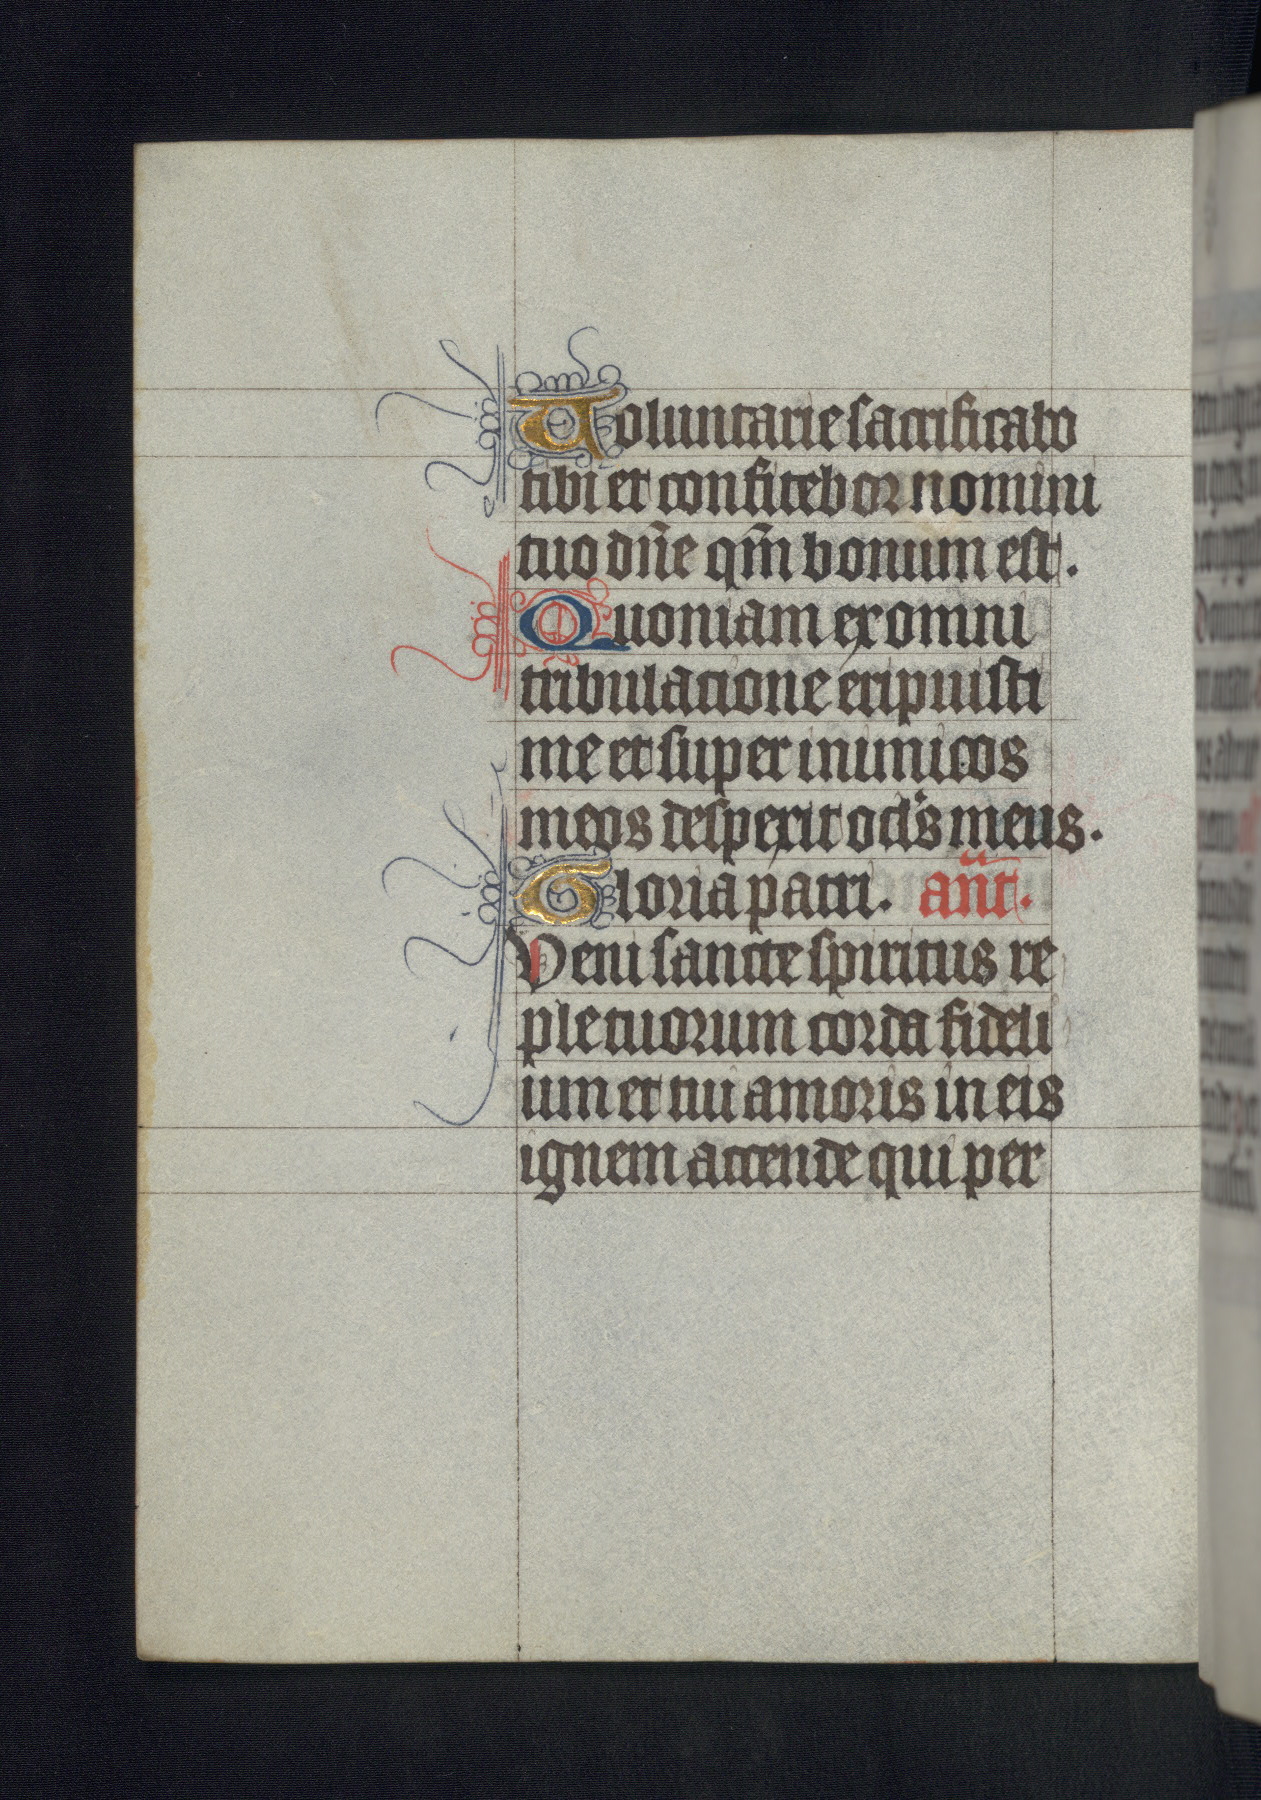 Voluntarie sacrificabo
tibi et confitebor nomini
tuo dn̄e qm̄ bonum est.
Quoniam ex omni
tribulacione eripuisti
me et super inimicos
meos desperit oclꝰs meus.
Gloria patri. an̄t.
Veni sancte spiritus re
ple tuorum corda fideli
um et tui amoris in eis
ignem accende qui per